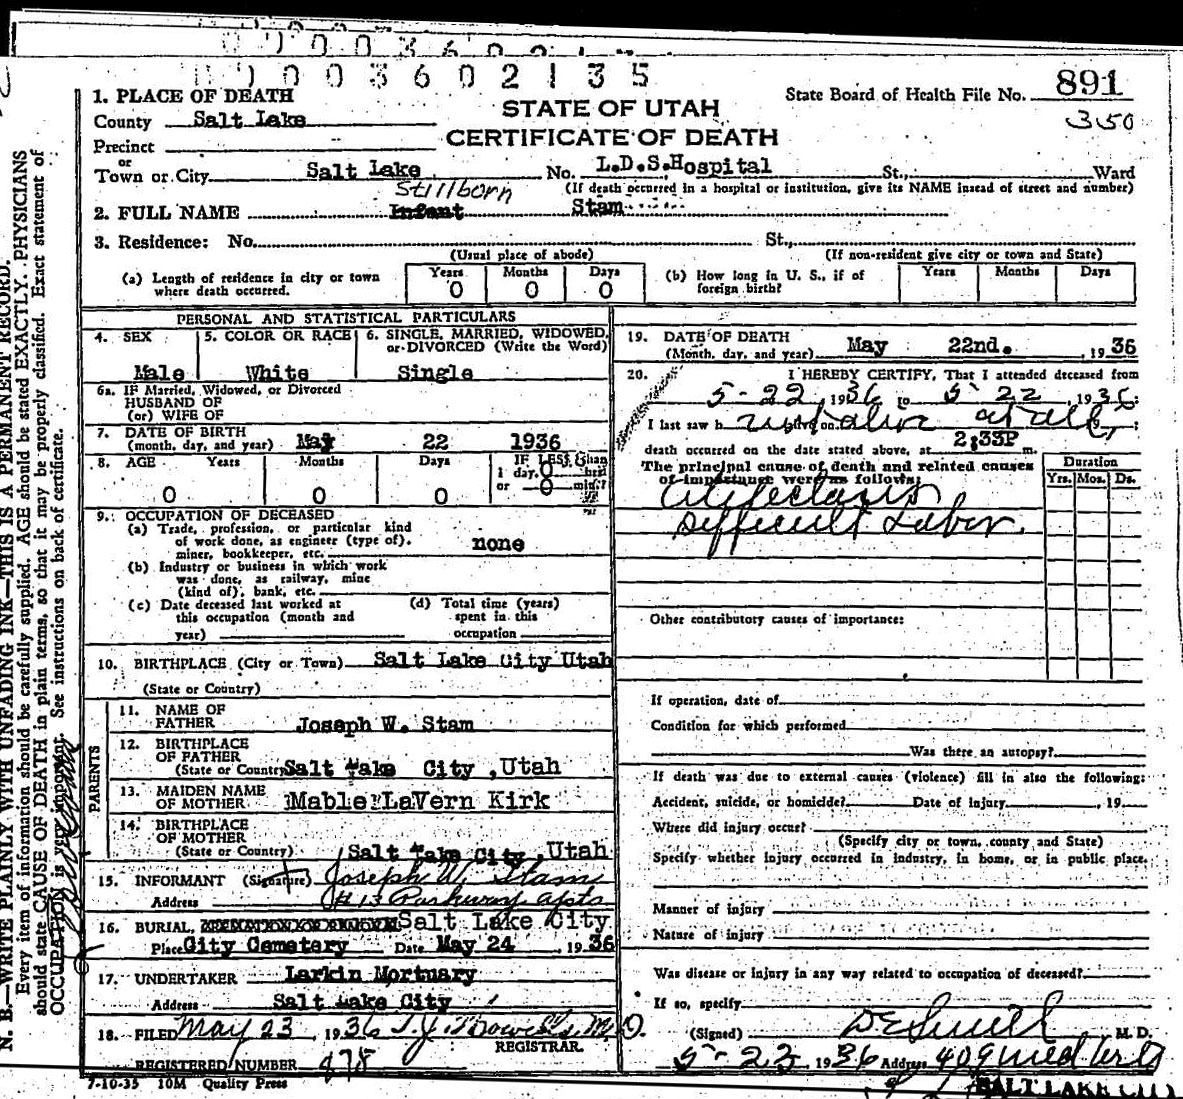 0 0 0 3 6 0 2 1 3 5
891
350
1. PLACE OF DEATH
STATE OF UTAH
State Board of Health File No.
County Salt Lake
CERTIFICATE OF DEATH
Precinct
or
Town or City Salt Lake No. L.D.S. Hospital St., Ward
(If death occurred in a hospital or institution, give its NAME instead of street and number)
Stillborn
2. FULL NAME Infant Stam
3. Residence: No. St.,
(Usual place of abode) (If non-resident give city or town and State)
(a) Length of residence in city or town where death occurred. Years 0 Months 0 Days 0
(b) How long in U. S., if of foreign birth? Years Months Days
PERSONAL AND STATISTICAL PARTICULARS
4. SEX 5. COLOR OR RACE 6. SINGLE, MARRIED, WIDOWED, or DIVORCED (Write the Word)
Male White Single
6a. IF Married, Widowed, or Divorced
HUSBAND OF
(or) WIFE OF
7. DATE OF BIRTH
(month, day, and year) May 22 1936
8. AGE Years Months Days IF LESS than
1 day, 0 hrs.
or 0 min.?
0 0 0
9. OCCUPATION OF DECEASED
(a) Trade, profession, or particular kind
of work done, as engineer (type of).
miner, bookkeeper, etc. none
(b) Industry or business in which work
was done, as railway, mine
(kind of), bank, etc.
(c) Date deceased last worked at
this occupation (month and
year)
(d) Total time (years)
spent in this
occupation
10. BIRTHPLACE (City or Town) Salt Lake City Utah
(State or Country)
PARENTS
11. NAME OF
FATHER Joseph W. Stam
12. BIRTHPLACE
OF FATHER
(State or Country) Salt Lake City, Utah
13. MAIDEN NAME
OF MOTHER Mable LaVern Kirk
14. BIRTHPLACE
OF MOTHER
(State or Country) Salt Lake City, Utah
15. INFORMANT (Signature) Joseph W. Stam
Address # 13 Parkway Apts
16. BURIAL, Salt Lake City
Place City Cemetery Date May 24, 1936
17. UNDERTAKER Larkin Mortuary
Address Salt Lake City
18. FILED May 23, 1936 M.D.
REGISTRAR.
REGISTERED NUMBER 478
7-10-35 10M Quality Press
19. DATE OF DEATH
(Month, day, and year) May 22nd., 1936
20. I HEREBY CERTIFY, That I attended deceased from
5-22, 1936 to 5-22, 1936;
I last saw h not alive on at all, 19 ;
death occurred on the date stated above, at 2:33P m.
The principal cause of death and related causes
of importance were as follows:
Duration
Yrs. Mos. Ds.
Atelectasis
Difficult Labor
Other contributory causes of importance:
If operation, date of
Condition for which performed
Was there an autopsy?
If death was due to external causes (violence) fill in also the following:
Accident, suicide, or homicide? Date of injury , 19
Where did injury occur?
(Specify city or town, county and State)
Specify whether injury occurred in industry, in home, or in public place.
Manner of injury
Nature of injury
Was disease or injury in any way related to occupation of deceased?
If so, specify
(Signed) M. D.
5-23, 1936 Address 409
SALT LAKE CITY
N. B.—WRITE PLAINLY WITH UNFADING INK—THIS IS A PERMANENT RECORD.
Every item of information should be carefully supplied. AGE should be stated EXACTLY. PHYSICIANS
should state CAUSE OF DEATH in plain terms, so that it may be properly classified. Exact statement of
OCCUPATION is very important. See instructions on back of certificate.